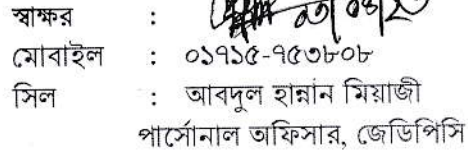 স্বাক্ষর :
মোবাইল : ০১৭১৫-৭৫৩৮০৮
সিল : আবদুল হান্নান মিয়াজী
পার্সোনাল অফিসার, জেডিপিসি